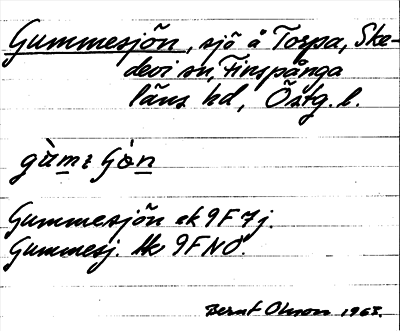 Gummesjön, sjö å Torpa, Ske-
devi sn, Finspånga
läns hd, Östg. l.
gùmɛ ʃön
Gummesjön ek 9F7j.
Gummesj. Hk 9F NO.
Bernt Olsson 1963.